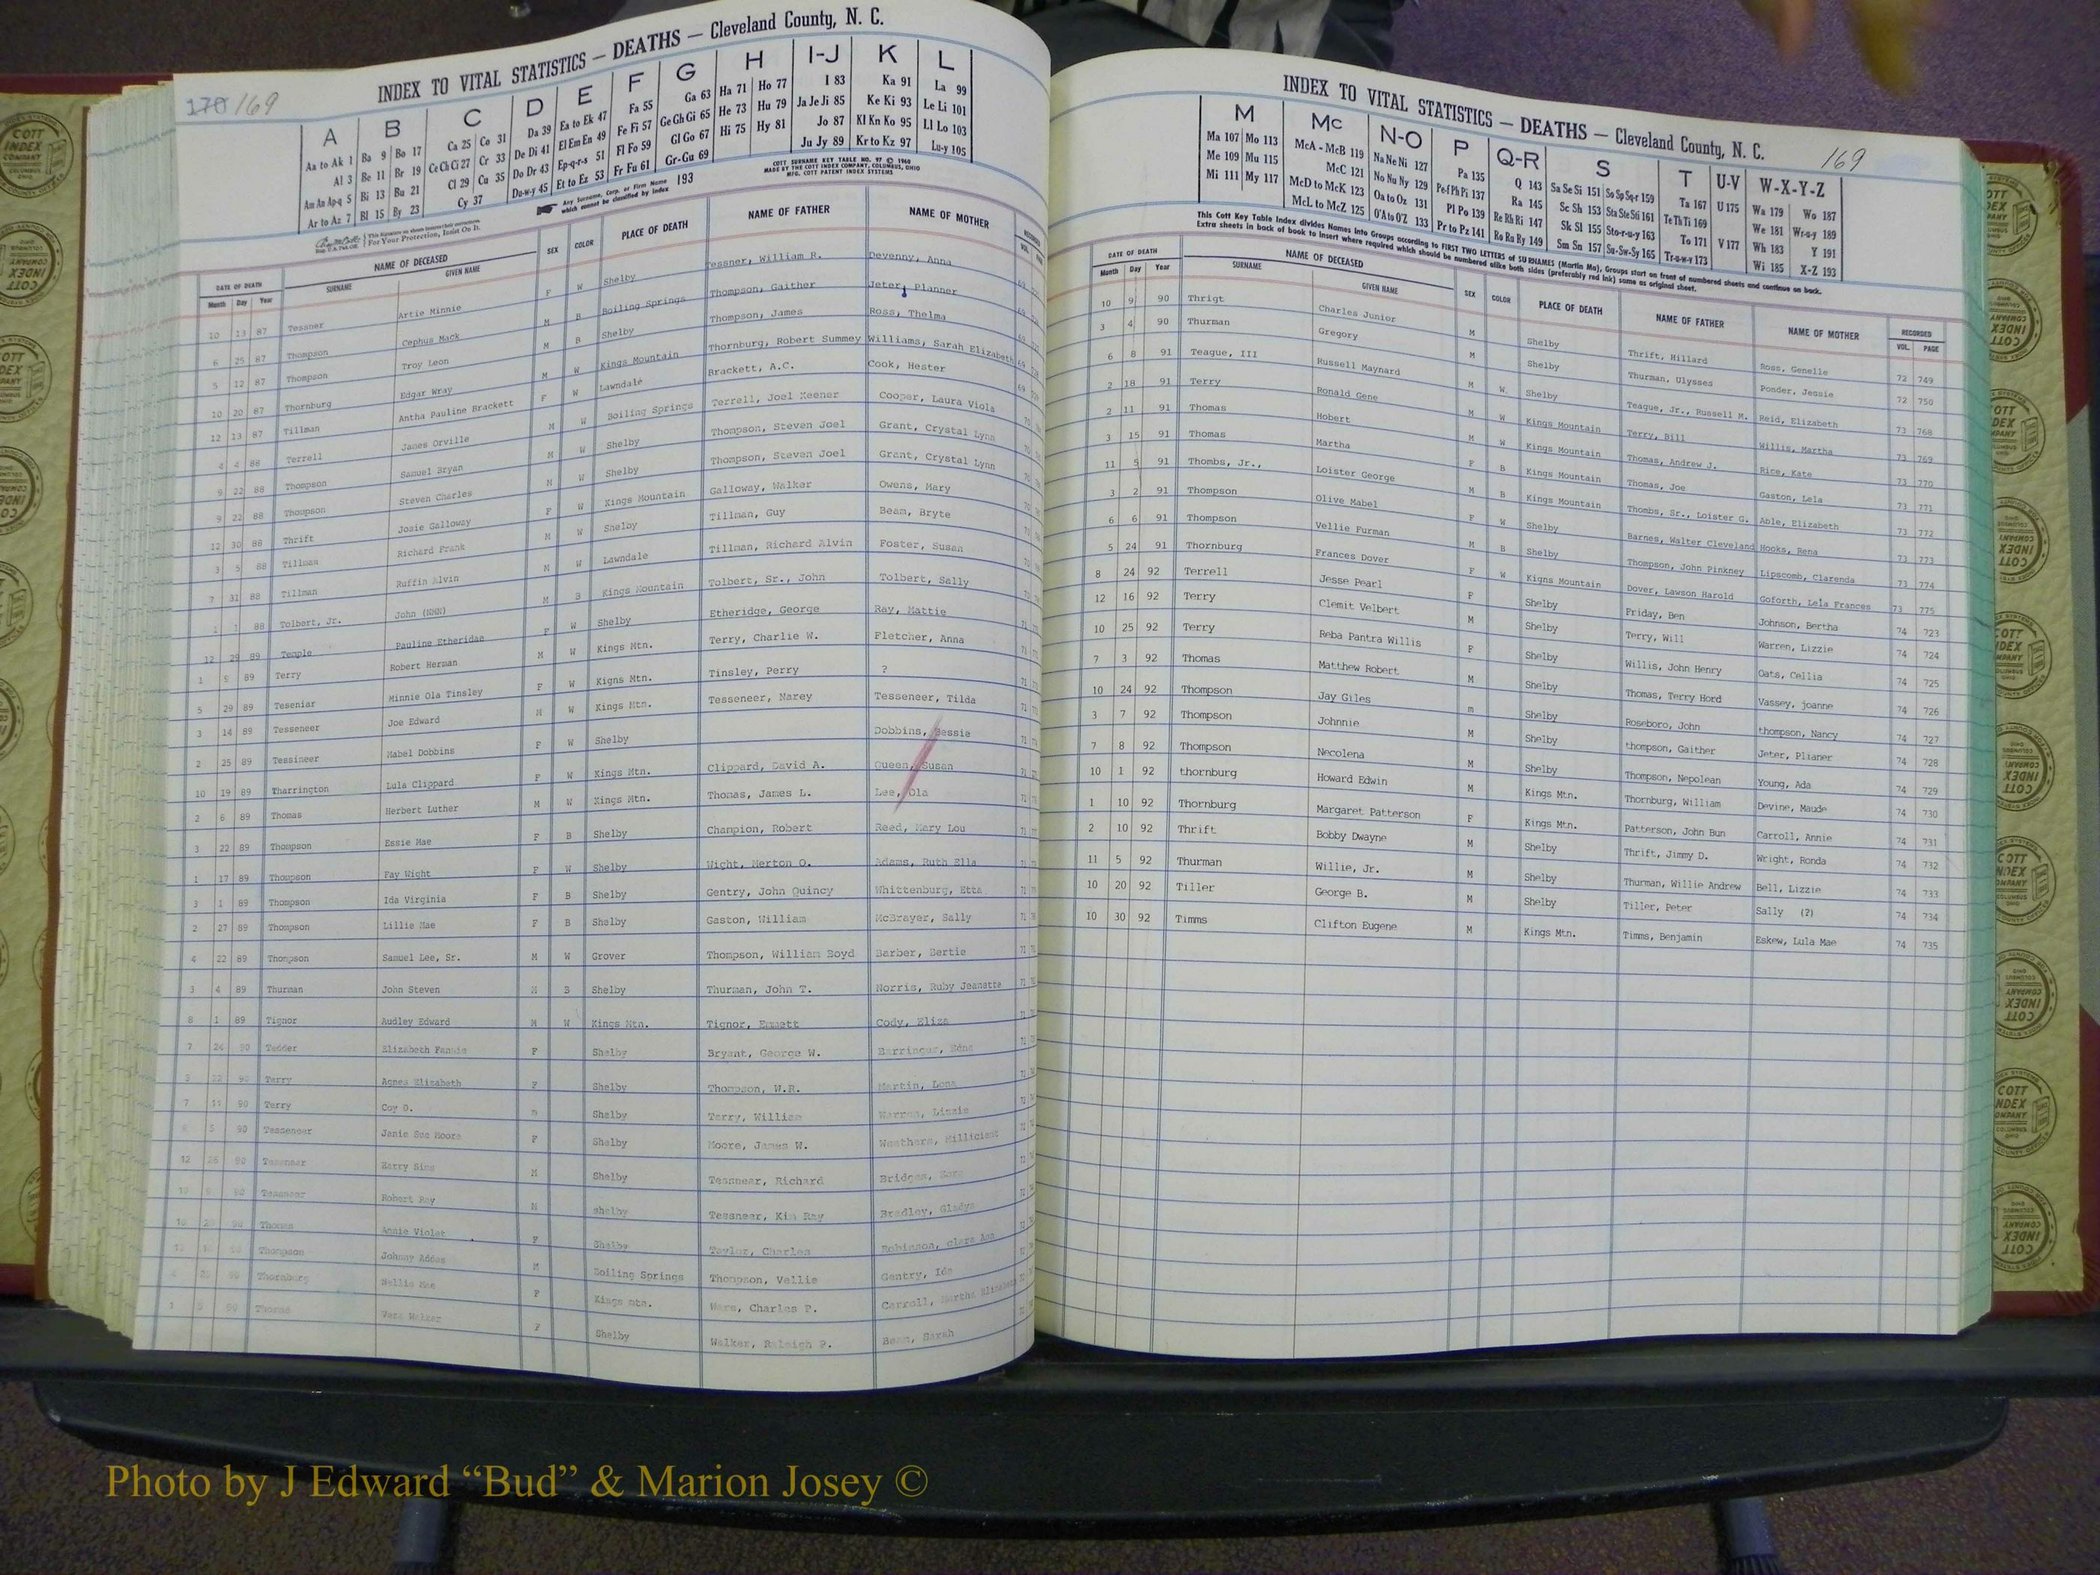 170 169
INDEX TO VITAL STATISTICS — DEATHS — Cleveland County, N. C.
A B C D E F G H I-J K L
Aa to Ak 1 Ba 9 Bo 17 Ca 25 Co 31 Da 39 Ea to Ek 47 Fa 55 Ga 63 Ha 71 Ho 77 I 83 Ka 91 La 99
Al 3 Be 11 Br 19 Ce Ch Ci 27 Cr 33 De Di 41 El Em En 49 Fe Fi 57 Ge Gh Gi 65 He 73 Hu 79 Ja Je Ji 85 Ke Ki 93 Le Li 101
Am An Ap-q 5 Bi 13 Bu 21 Cl 29 Cu 35 Do Dr 43 Ep-q-r-s 51 Fl Fo 59 Gl Go 67 Hi 75 Hy 81 Jo 87 Kl Kn Ko 95 Ll Lo 103
Ar to Az 7 Bl 15 By 23 Cy 37 Du-w-y 45 Et to Ez 53 Fr Fu 61 Gr-Gu 69 Ju Jy 89 Kr to Kz 97 Lu-y 105
Any Surname, Corp. or Firm Name which cannot be classified by index 193
COTT SURNAME KEY TABLE NO. 97 © 1960
MADE BY THE COTT INDEX COMPANY, COLUMBUS, OHIO
MFG. COTT PATENT INDEX SYSTEMS
DATE OF DEATH NAME OF DECEASED SEX COLOR PLACE OF DEATH NAME OF FATHER NAME OF MOTHER RECORDED
Month Day Year SURNAME GIVEN NAME
10 13 87 Tessner Artie Minnie F W Shelby Tessner, William R. Devenny, Anna
6 25 87 Thompson Cephus Mack M B Boiling Springs Thompson, Gaither Jeter, Planner
5 12 87 Thompson Troy Leon M B Shelby Thompson, James Ross, Thelma
10 20 87 Thornburg Edgar Wray M W Kings Mountain Thornburg, Robert Summey Williams, Sarah Elizabeth
12 13 87 Tillman Antha Pauline Brackett F W Lawndale Brackett, A.C. Cook, Hester
4 4 88 Terrell James Orville M W Boiling Springs Terrell, Joel Keener Cooper, Laura Viola
9 22 88 Thompson Samuel Bryan M W Shelby Thompson, Steven Joel Grant, Crystal Lynn
9 22 88 Thompson Steven Charles M W Shelby Thompson, Steven Joel Grant, Crystal Lynn
12 30 88 Thrift Josie Galloway F W Kings Mountain Galloway, Walker Owens, Mary
3 5 88 Tillman Richard Frank M W Shelby Tillman, Guy Beam, Bryte
7 31 88 Tillman Ruffin Alvin M W Lawndale Tillman, Richard Alvin Foster, Susan
1 1 88 Tolbert, Jr. John (NMN) M B Kings Mountain Tolbert, Sr., John Tolbert, Sally
12 29 89 Temple Pauline Etheridge F W Shelby Etheridge, George Ray, Mattie
1 9 89 Terry Robert Herman M W Kings Mtn. Terry, Charlie W. Fletcher, Anna
5 29 89 Teseniar Minnie Ola Tinsley F W Kigns Mtn. Tinsley, Perry ?
3 14 89 Tesseneer Joe Edward M W Kings Mtn. Tesseneer, Narey Tesseneer, Tilda
2 25 89 Tessineer Mabel Dobbins F W Shelby Dobbins, Bessie
10 19 89 Tharrington Lula Clippard F W Kings Mtn. Clippard, David A. Queen, Susan
2 6 89 Thomas Herbert Luther M W Kings Mtn. Thomas, James L. Lee, Ola
3 22 89 Thompson Essie Mae F B Shelby Champion, Robert Reed, Mary Lou
1 17 89 Thompson Fay Wight F W Shelby Wight, Merton O. Adams, Ruth Ella
3 1 89 Thompson Ida Virginia F B Shelby Gentry, John Quincy Whittenburg, Etta
2 27 89 Thompson Lillie Mae F B Shelby Gaston, William McBrayer, Sally
4 22 89 Thompson Samuel Lee, Sr. M W Grover Thompson, William Boyd Barber, Bertie
3 4 89 Thurman John Steven M B Shelby Thurman, John T. Norris, Ruby Jeanette
8 1 89 Tignor Audley Edward M W Kings Mtn. Tignor, Emmett Cody, Eliza
7 24 90 Tedder Elizabeth Fannie F Shelby Bryant, George W. Barringer, Edna
90 Terry Agnes Elizabeth F Shelby Thompson, W.R. Martin, Lona
7 11 90 Terry Coy D. m Shelby Terry, William Warren, Lizzie
6 5 90 Tesseneer Janie Sue Moore F Shelby Moore, James W. Weathers, Millicient
12 26 90 Tessnear Harry Sims M Shelby Tessnear, Richard Bridges,
90 Tessneer Robert Ray M Shelby Tessneer, Kim Ray Bradley, Gladys
90 Thomas Annie Violet F Shelby Taylor, Charles Robinson, Clara Ann
Thompson Johnny Addes M Boiling Springs Thompson, Vellie Gentry, Ida
90 Thornburg Nellie Mae F Kings mtn. Ware, Charles P. Carroll, Martha Elizabeth
1 5 90 Thorne Vera Walker F Shelby Walker, Raleigh P. Beam, Sarah
INDEX TO VITAL STATISTICS — DEATHS — Cleveland County, N. C. 169
M Mc N-O P Q-R S T U-V W-X-Y-Z
Ma 107 Mo 113 McA - McB 119 Na Ne Ni 127 Pa 135 Q 143 Sa Se Si 151 So Sp Sq-r 159 Ta 167 U 175 Wa 179 Wo 187
Me 109 Mu 115 McC 121 No Nu Ny 129 Pe-f Ph Pi 137 Ra 145 Sc Sh 153 Sta Ste Sti 161 Te Th Ti 169 We 181 Wr-u-y 189
Mi 111 My 117 McD to McK 123 Oa to Oz 131 Pl Po 139 Re Rh Ri 147 Sk Sl 155 Sto-r-u-y 163 To 171 V 177 Wh 183 Y 191
McL to McZ 125 O'A to O'Z 133 Pr to Pz 141 Ro Ru Ry 149 Sm Sn 157 Su-Sw-Sy 165 Tr-u-w-y 173 Wi 185 X-Z 193
This Cott Key Table Index divides Names into Groups according to FIRST TWO LETTERS of SURNAMES (Martin Ma), Groups start on front of numbered sheets and continue on back.
Extra sheets in back of book to insert where required which should be numbered alike both sides (preferably red ink) same as original sheet.
DATE OF DEATH NAME OF DECEASED SEX COLOR PLACE OF DEATH NAME OF FATHER NAME OF MOTHER RECORDED
Month Day Year SURNAME GIVEN NAME VOL. PAGE
10 9 90 Thrigt Charles Junior M Shelby Thrift, Hillard Ross, Genelle 72 749
3 4 90 Thurman Gregory M Shelby Thurman, Ulysses Ponder, Jessie 72 750
6 8 91 Teague, III Russell Maynard M W. Shelby Teague, Jr., Russell M. Reid, Elizabeth 73 768
2 18 91 Terry Ronald Gene M W Kings Mountain Terry, Bill Willis, Martha 73 769
2 11 91 Thomas Hobert M W Kings Mountain Thomas, Andrew J. Rice, Kate 73 770
3 15 91 Thomas Martha F B Kings Mountain Thomas, Joe Gaston, Lela 73 771
11 5 91 Thombs, Jr., Loister George M B Kings Mountain Thombs, Sr., Loister G. Able, Elizabeth 73 772
3 2 91 Thompson Olive Mabel F W Shelby Barnes, Walter Cleveland Hooks, Rena 73 773
6 6 91 Thompson Vellie Furman M B Shelby Thompson, John Pinkney Lipscomb, Clarenda 73 774
5 24 91 Thornburg Frances Dover F W Kigns Mountain Dover, Lawson Harold Goforth, Lela Frances 73 775
8 24 92 Terrell Jesse Pearl F Shelby Friday, Ben Johnson, Bertha 74 723
12 16 92 Terry Clemit Velbert M Shelby Terry, Will Warren, Lizzie 74 724
10 25 92 Terry Reba Pantra Willis F Shelby Willis, John Henry Oats, Cellia 74 725
7 3 92 Thomas Matthew Robert M Shelby Thomas, Terry Hord Vassey, joanne 74 726
10 24 92 Thompson Jay Giles m Shelby Roseboro, John thompson, Nancy 74 727
3 7 92 Thompson Johnnie M Shelby thompson, Gaither Jeter, Planer 74 728
7 8 92 Thompson Necolena M Shelby Thompson, Nepolean Young, Ada 74 729
10 1 92 thornburg Howard Edwin M Kings Mtn. Thornburg, William Devine, Maude 74 730
1 10 92 Thornburg Margaret Patterson F Kings Mtn. Patterson, John Bun Carroll, Annie 74 731
2 10 92 Thrift Bobby Dwayne M Shelby Thrift, Jimmy D. Wright, Ronda 74 732
11 5 92 Thurman Willie, Jr. M Shelby Thurman, Willie Andrew Bell, Lizzie 74 733
10 20 92 Tiller George B. M Shelby Tiller, Peter Sally (?) 74 734
10 30 92 Timms Clifton Eugene M Kings Mtn. Timms, Benjamin Eskew, Lula Mae 74 735
Photo by J Edward “Bud” & Marion Josey ©